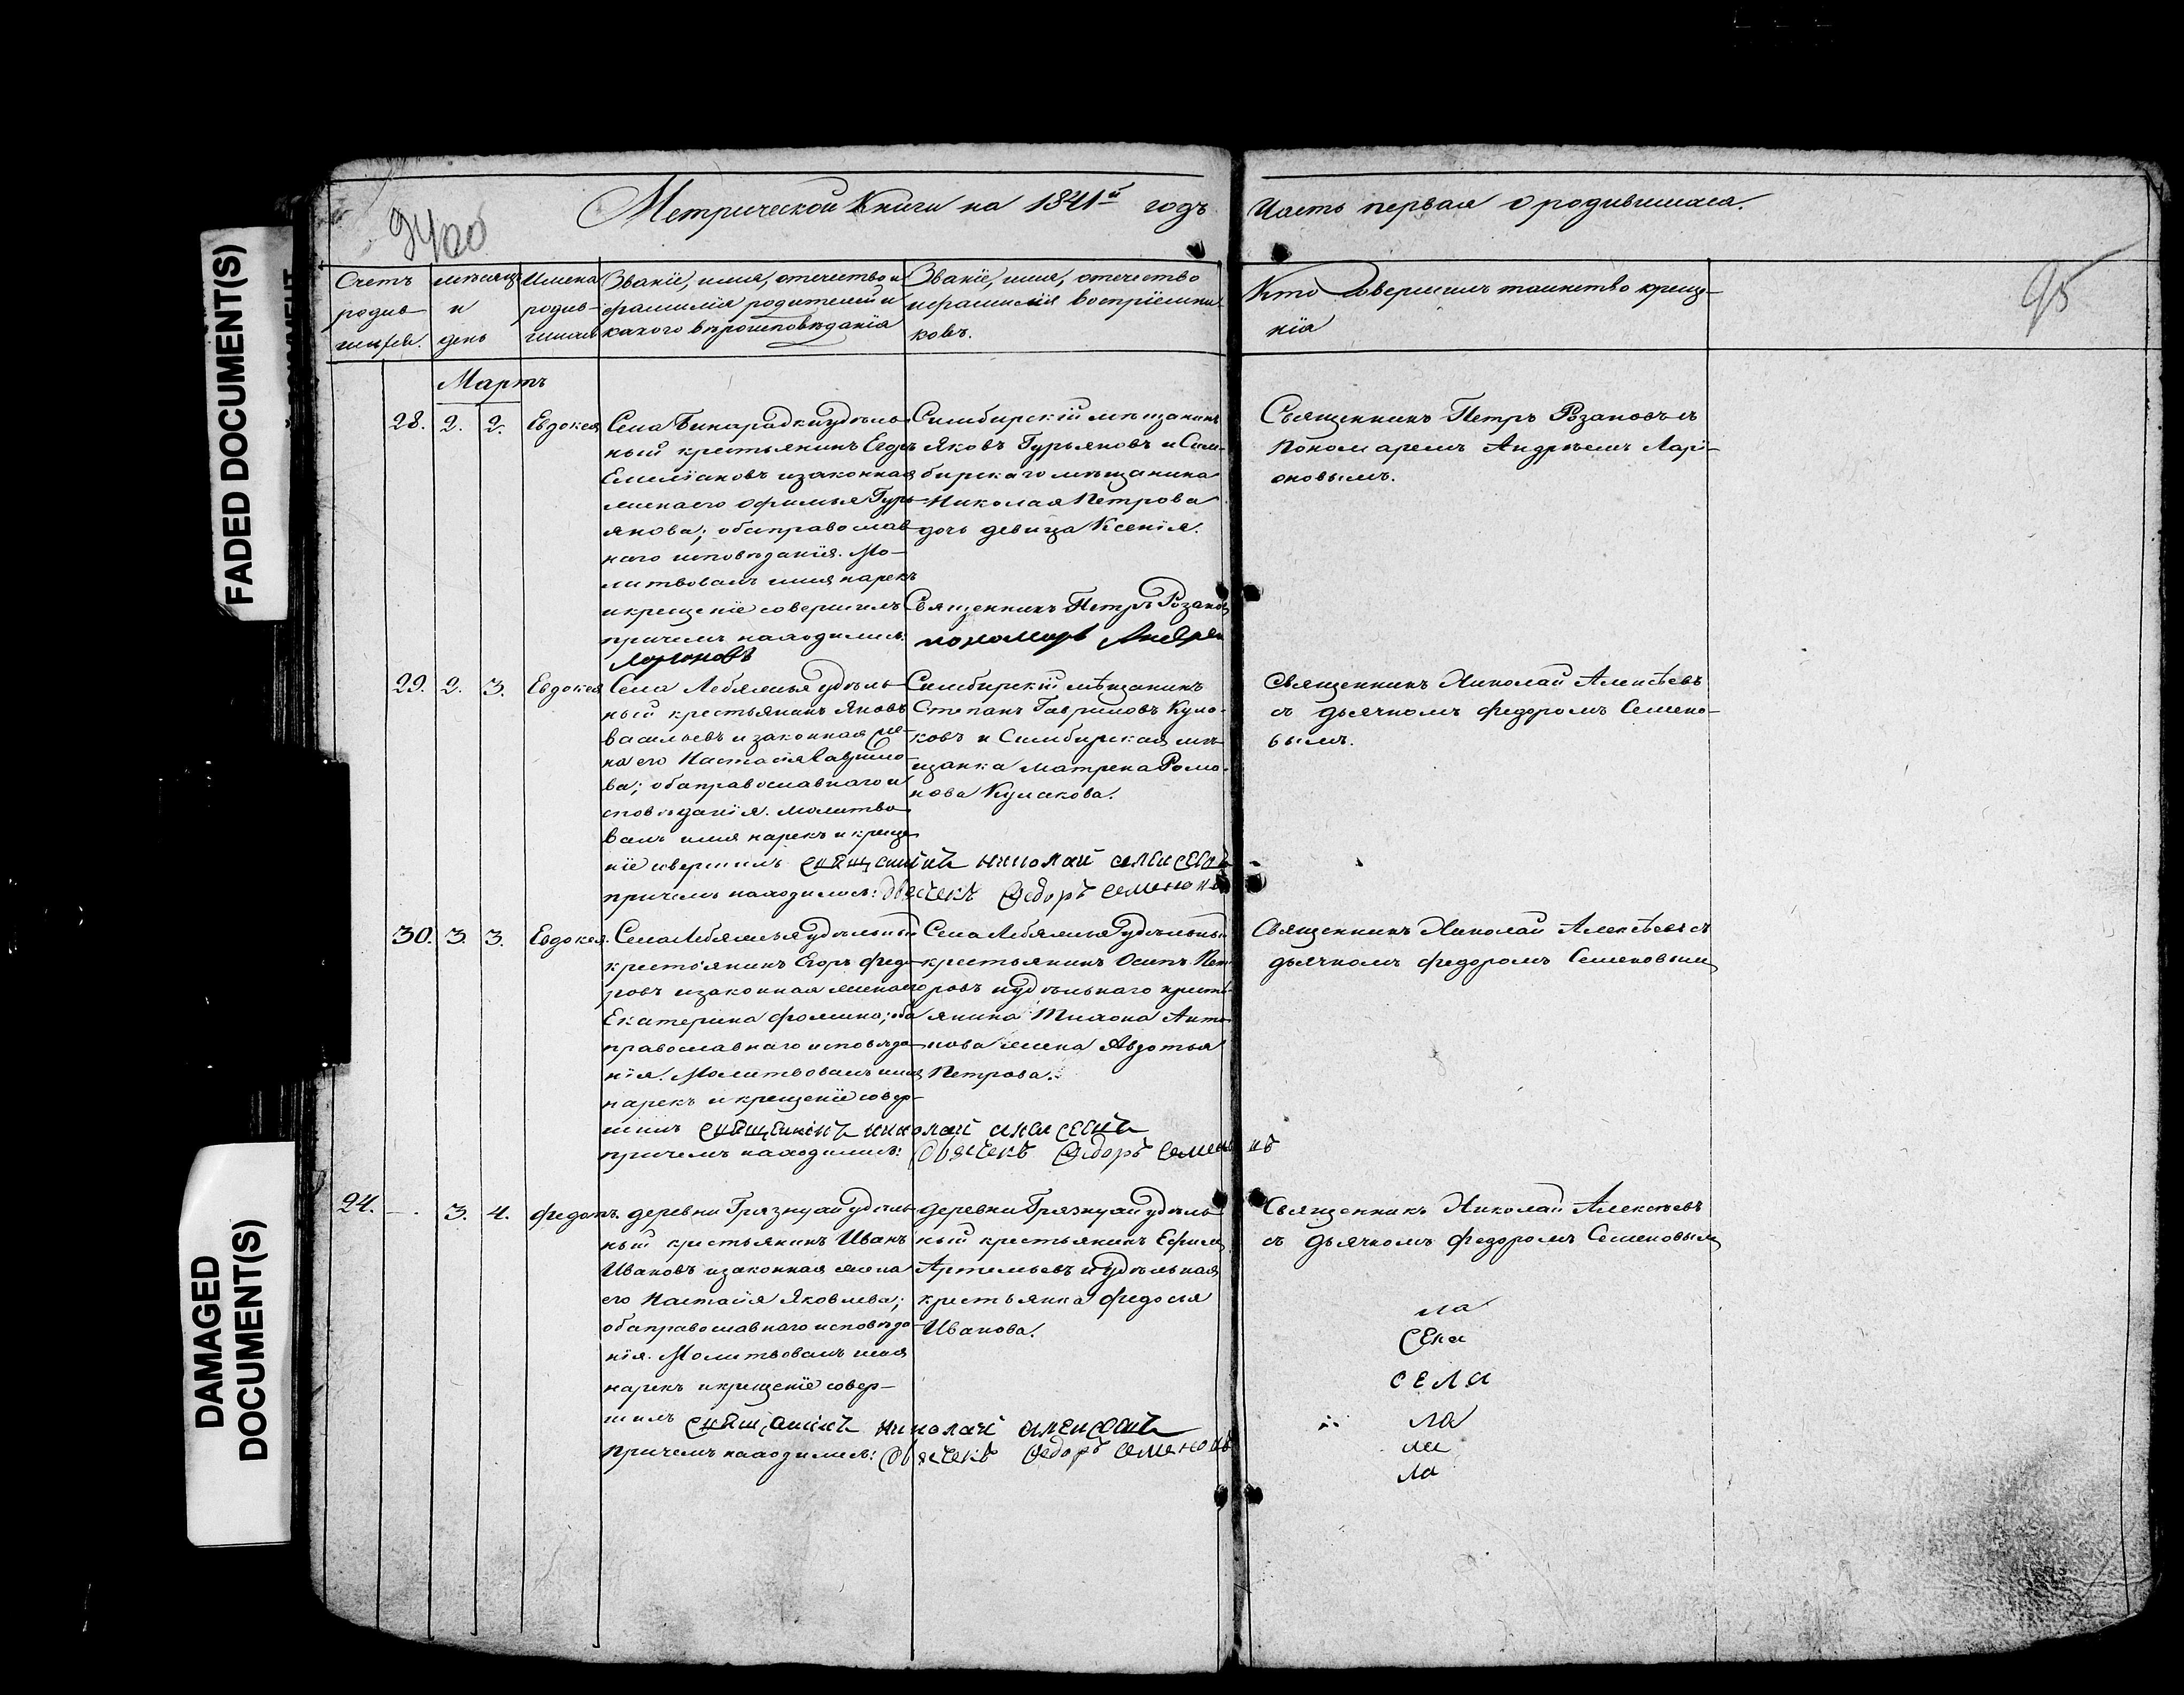 FADED DOCUMENT(S)
DAMAGED
DOCUMENT(S)
Метрической Книги на 1841й годъ
Часть первая о родившихся.
95
Счетъ
родив
шихся.
мѣсяцъ
и
день
Имена
родив-
шихся
Званіе, имя, отечество и
фамилія родителей и
какого вѣроисповѣданія
Званіе, имя, отечество
и фамилія воспріемни-
ковъ.
Кто совершилъ таинство креще-
нія
Мартъ
28. 2. 2. Евдокея
Села Бинарадки удѣль-
ный крестьянинъ Егоръ
Емеліановъ и законная
жена его Офимья Гурь-
янова; оба православ-
наго исповѣданія. Мо-
литвовалъ имя нарекъ
и крещеніе совершилъ Священникъ Петръ Розановъ
причемъ находились: пономарь Андрей
Ларіоновъ
Симбирскій мѣщанинъ
Яковъ Гурьяновъ и Сим-
бирскаго мѣщанина
Николая Петрова
дочь девица Ксенія.
Священникъ Петръ Розановъ съ
Пономаремъ Андреемъ Ларі-
оновымъ.
29. 2. 3. Евдокея
Села Лебяжья удѣль-
ный крестьянинъ Яковъ
Васильевъ и законная же-
на его Настасія Гаврило-
ва; оба православнаго и
сповѣданія. Молитво-
валъ имя нарекъ и креще
ніе совершилъ священникъ николай алексеевъ
причемъ находились: дьячекъ Федоръ семеновъ
Симбирскій мѣщанинъ
Степанъ Гавриловъ Кула-
ковъ и Симбирская мѣ-
щанка Матрена Рома-
нова Кулакова.
Священникъ Николай Алексѣевъ
съ дьячкомъ Федоромъ Семено-
вымъ.
30. 3. 3. Евдокея.
Села Лебяжья удѣльный
крестьянинъ Егоръ Федо-
ровъ и законная жена его
Екатерина Фомина; оба
православнаго исповѣда-
нія. Молитвовалъ имя
нарекъ и крещеніе совер-
шилъ священникъ николай алексеевъ
причемъ находились: дьячекъ Федоръ семеновъ
Села Лебяжья удѣльный
крестьянинъ Осипъ Пет-
ровъ и удѣльнаго кресть-
янина Тихона Анто-
нова жена Авдотья
Петрова.
Священникъ Николай Алексѣевъ съ
дьячкомъ Федоромъ Семеновымъ
24. —. 3. 4. Федотъ.
деревни Грязнухи удѣль-
ный крестьянинъ Иванъ
Ивановъ и законная жена
его Настасія Яковлева;
оба православнаго исповѣда-
нія. Молитвовалъ имя
нарекъ и крещеніе совер-
шилъ священникъ николай алексеевъ
Причемъ находились: дьячекъ Федоръ семеновъ
деревни Грязнухи удѣль-
ный крестьянинъ Ефимъ
Артемьевъ и удѣльная
крестьянка Федосья
Иванова.
Священникъ Николай Алексѣевъ
съ дьячкомъ Федоромъ Семеновымъ
ла
села
села
ла
ла
ла